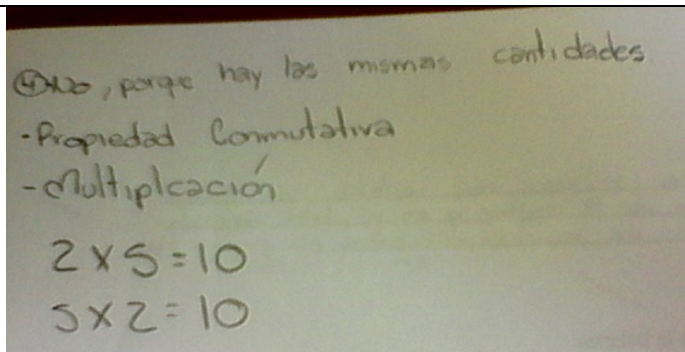 ④ No, porque hay las mismas cantidades
- Propiedad Conmutativa
- Multiplcación
2 x 5 = 10
5 x 2 = 10